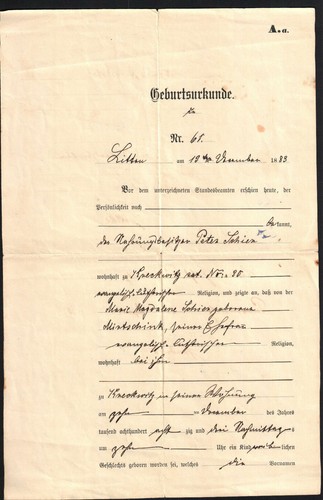 A. a.
Geburtsurkunde.
Nr. 61.
Litten am 19ten December 1883
Vor dem unterzeichneten Standesbeamten erschien heute, der
Persönlichkeit nach
bekannt,
der Nahrungsbesitzer Peter
wohnhaft zu Kreckwitz
evangelisch-lutherischer Religion, und zeigte an, daß von der
Marie Magdalene geborene
seiner Ehefrau
evangelisch-lutherischer Religion,
wohnhaft bei ihm
zu Kreckwitz in seiner Wohnung
am December des Jahres
tausend achthundert acht zig und drei Nachmittags
um Uhr ein Kind weiblichen
Geschlechts geboren worden sei, welches die Vornamen